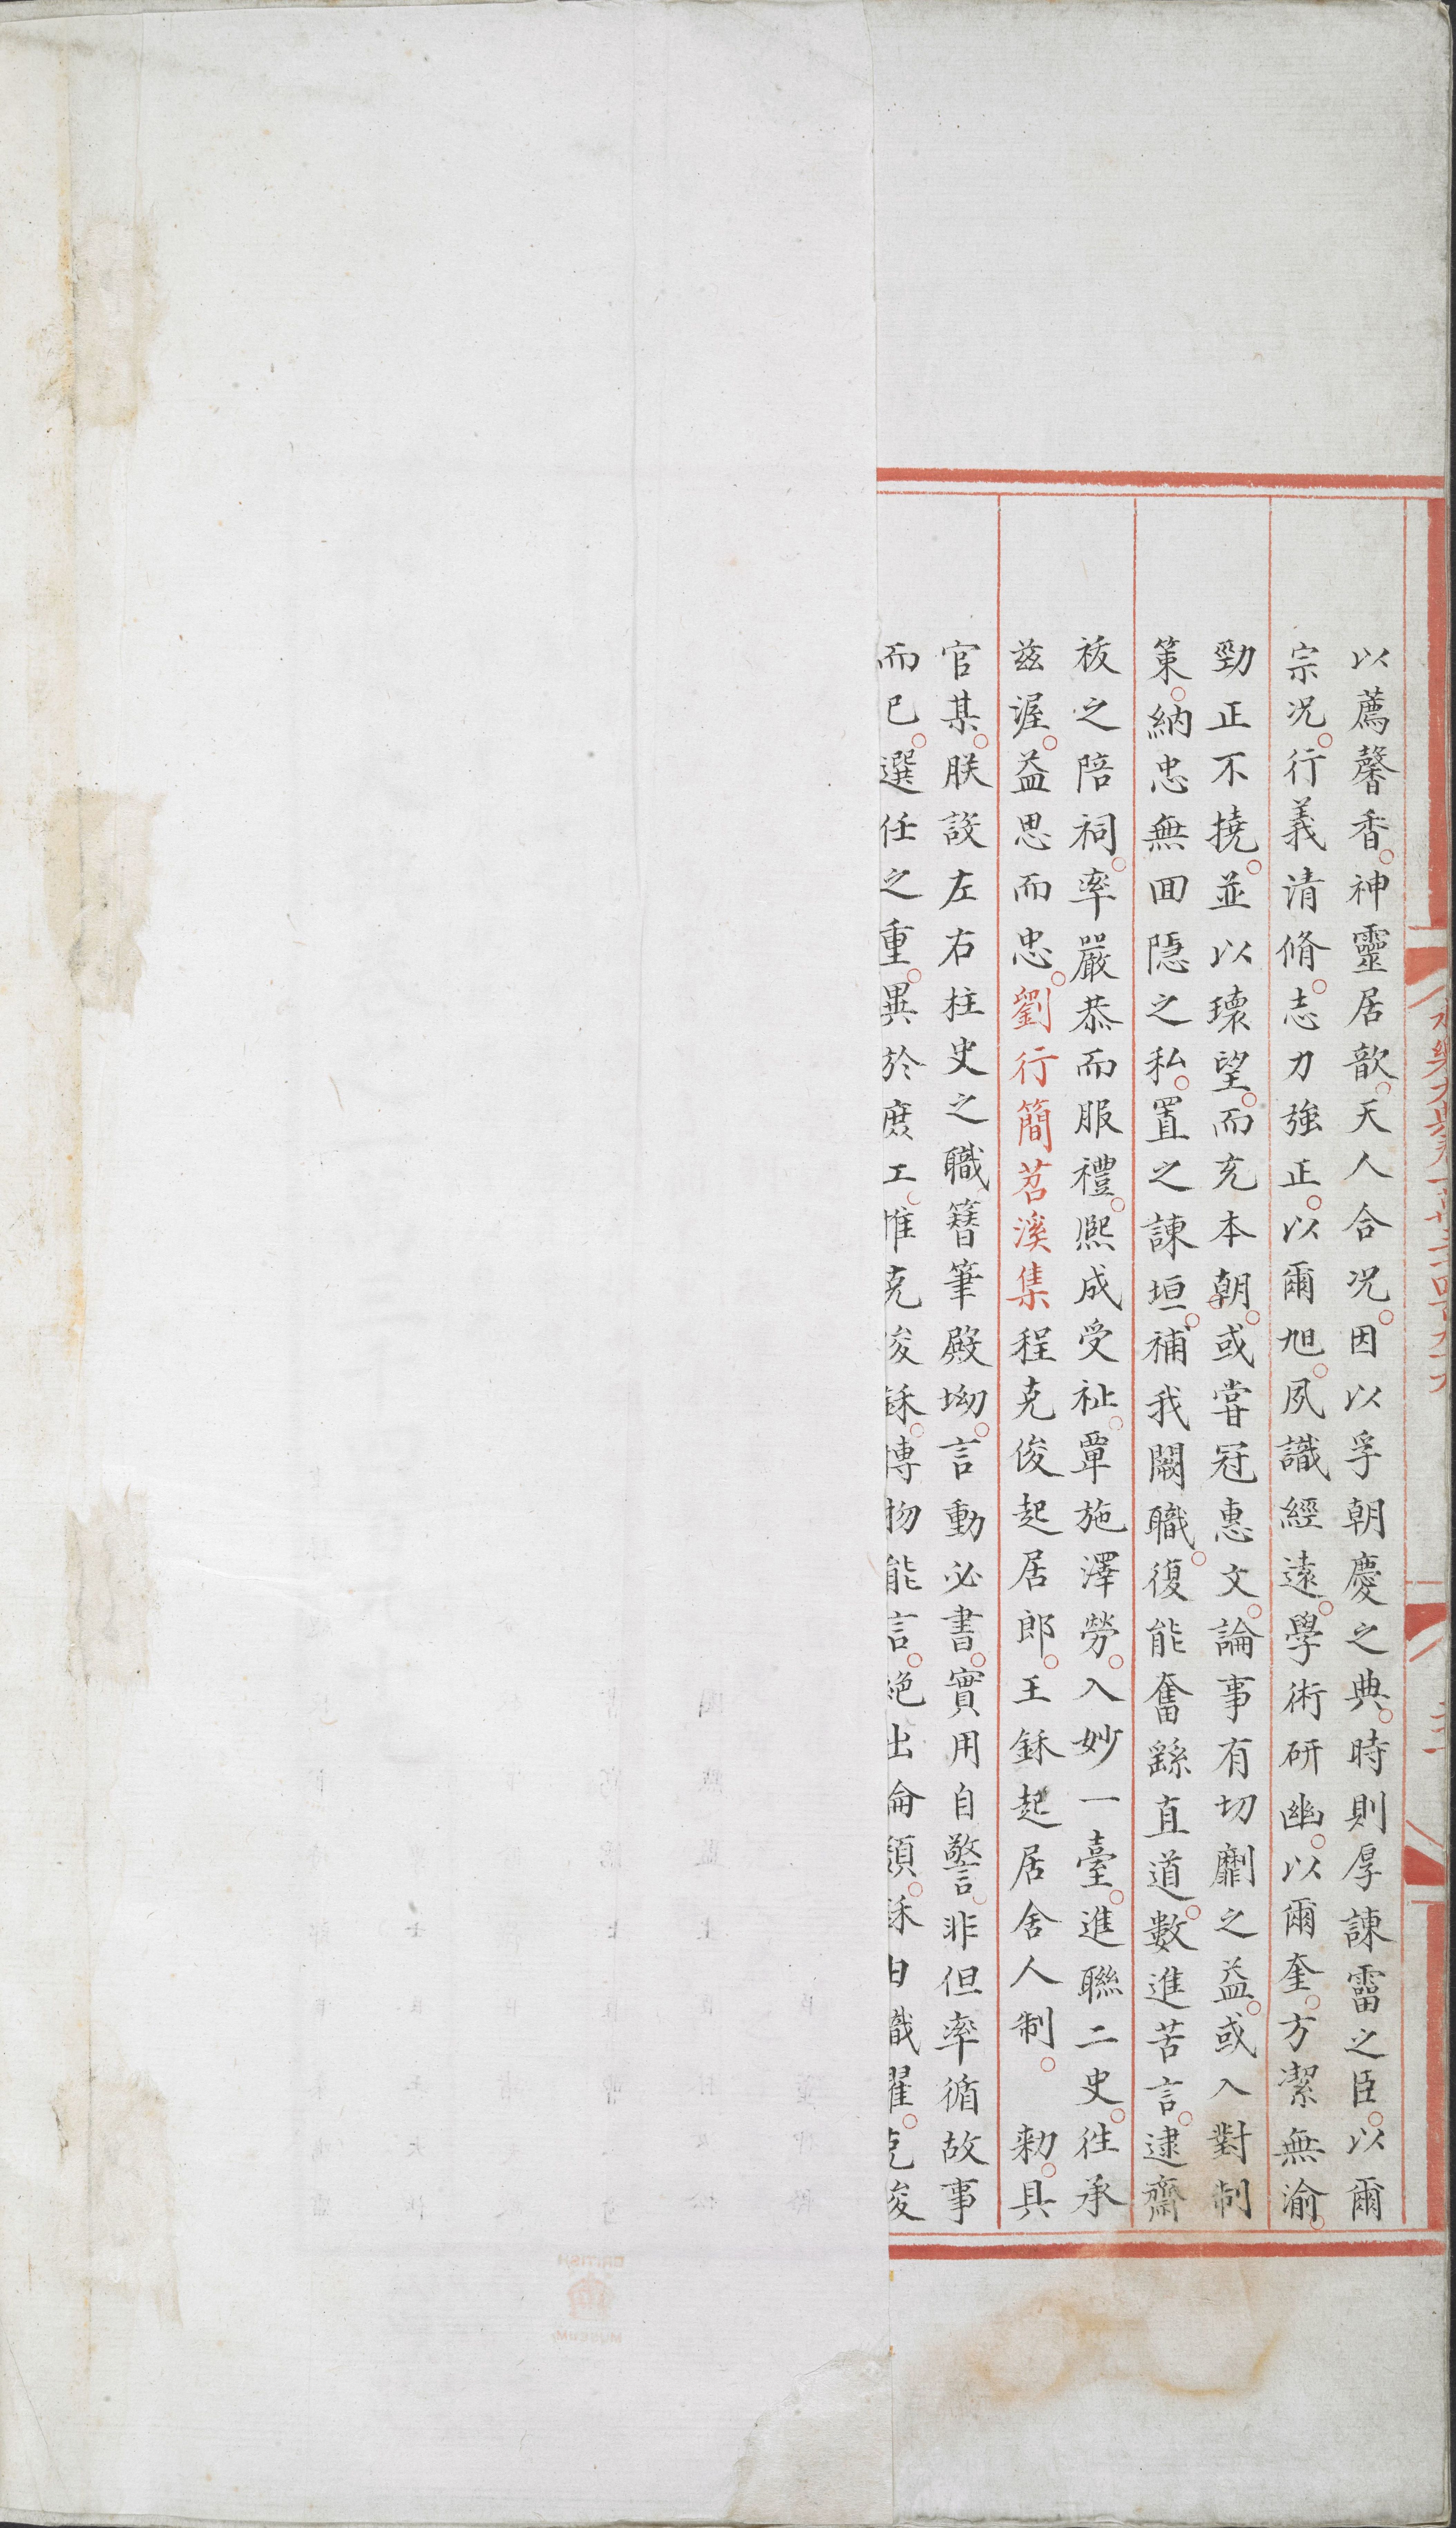 以薦馨香神靈居歆天人合况因以孚朝慶之典時則厚諫霤之臣以爾
宗况行義清脩志力強正以爾旭夙識經遠學術研幽以爾奎方潔無渝
勁正不撓並以瓌望而充本朝或甞冠惠文論事有切劘之益或入對制
策納忠無回隠之私置之諫垣補我闕職復能奮繇直道數進苦言逮齋
祓之陪祠率嚴恭而服禮熙成受祉覃施澤勞入妙一臺進聯二史徃承
兹渥益思而忠劉行簡苕溪集程克俊起居郎王鉌起居舍人制 勑具
官某朕設左右柱史之職簪筆殿坳言動必書實用自警非但率循故事
而已選任之重異於庶工惟克俊鉌博物能言絶出倫類鉌由職擢克俊